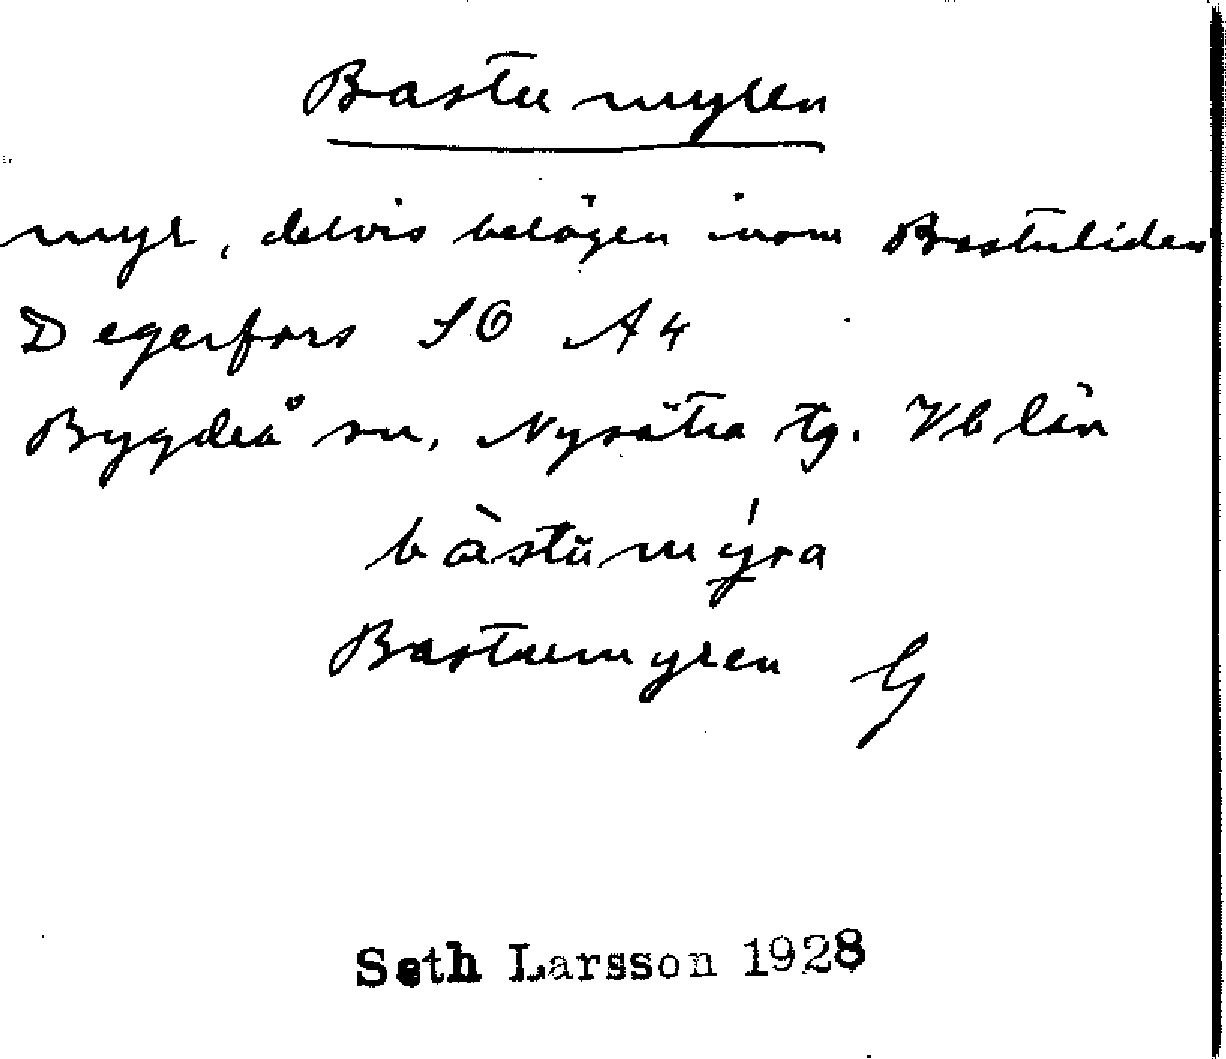 Bastumyren
myr, delvis belägen inom Bastuliden
Degerfors SO A4
Bygdeå sn, Nysätra tg. Vb län
bàstumýra
Bastumyren G
Seth Larsson 1928